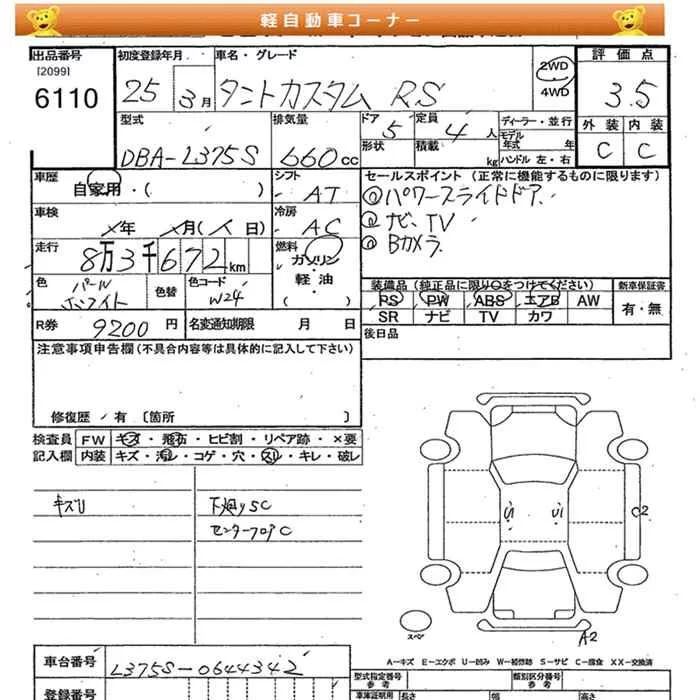 軽自動車コーナー
出品番号
[2099]
6110
初度登録年月
25 3月
車名・グレード
タントカスタム RS
2WD
4WD
評価点
3.5
外装 内装
C C
型式
DBA-L375S
排気量
660cc
ドア 5
形状
定員 4人
積載 kg
ディーラー・並行
モデル
年式 年
ハンドル 左・右
車歴
自家用・( )
シフト
AT
セールスポイント(正常に機能するものに限ります)
◎パワースライドドア.
◎ナビ、TV
◎Bカメラ.
車検
年 月( 日)
冷房
AC
走行
8万3千672km
燃料
ガソリン
軽油
( )
色
パール
ホワイト
色替
色コード
W24
装備品(純正品に限り○をつけてください)
PS PW ABS エアB AW
SR ナビ TV カワ
新車保証書
有・無
R券 9200円
名変通知期限 月 日
後日品
注意事項申告欄(不具合内容等は具体的に記入して下さい)
修復歴/有〔箇所 〕
検査員
記入欄
FW キズ・飛石・ヒビ割・リペア跡・×要
内装 キズ・汚れ・コゲ・穴・スリ・キレ・破レ
キズU
下廻りSC
センターフロアC
C2
スペア
A2
A-キズ E-エクボ U-凹み W-補修跡 S-サビ C-腐食 XX-交換済
車台番号
L375S-0644342
登録番号
型式指定番号
参考
類別区分番号
参考
車庫証明用
長さ
幅
高さ